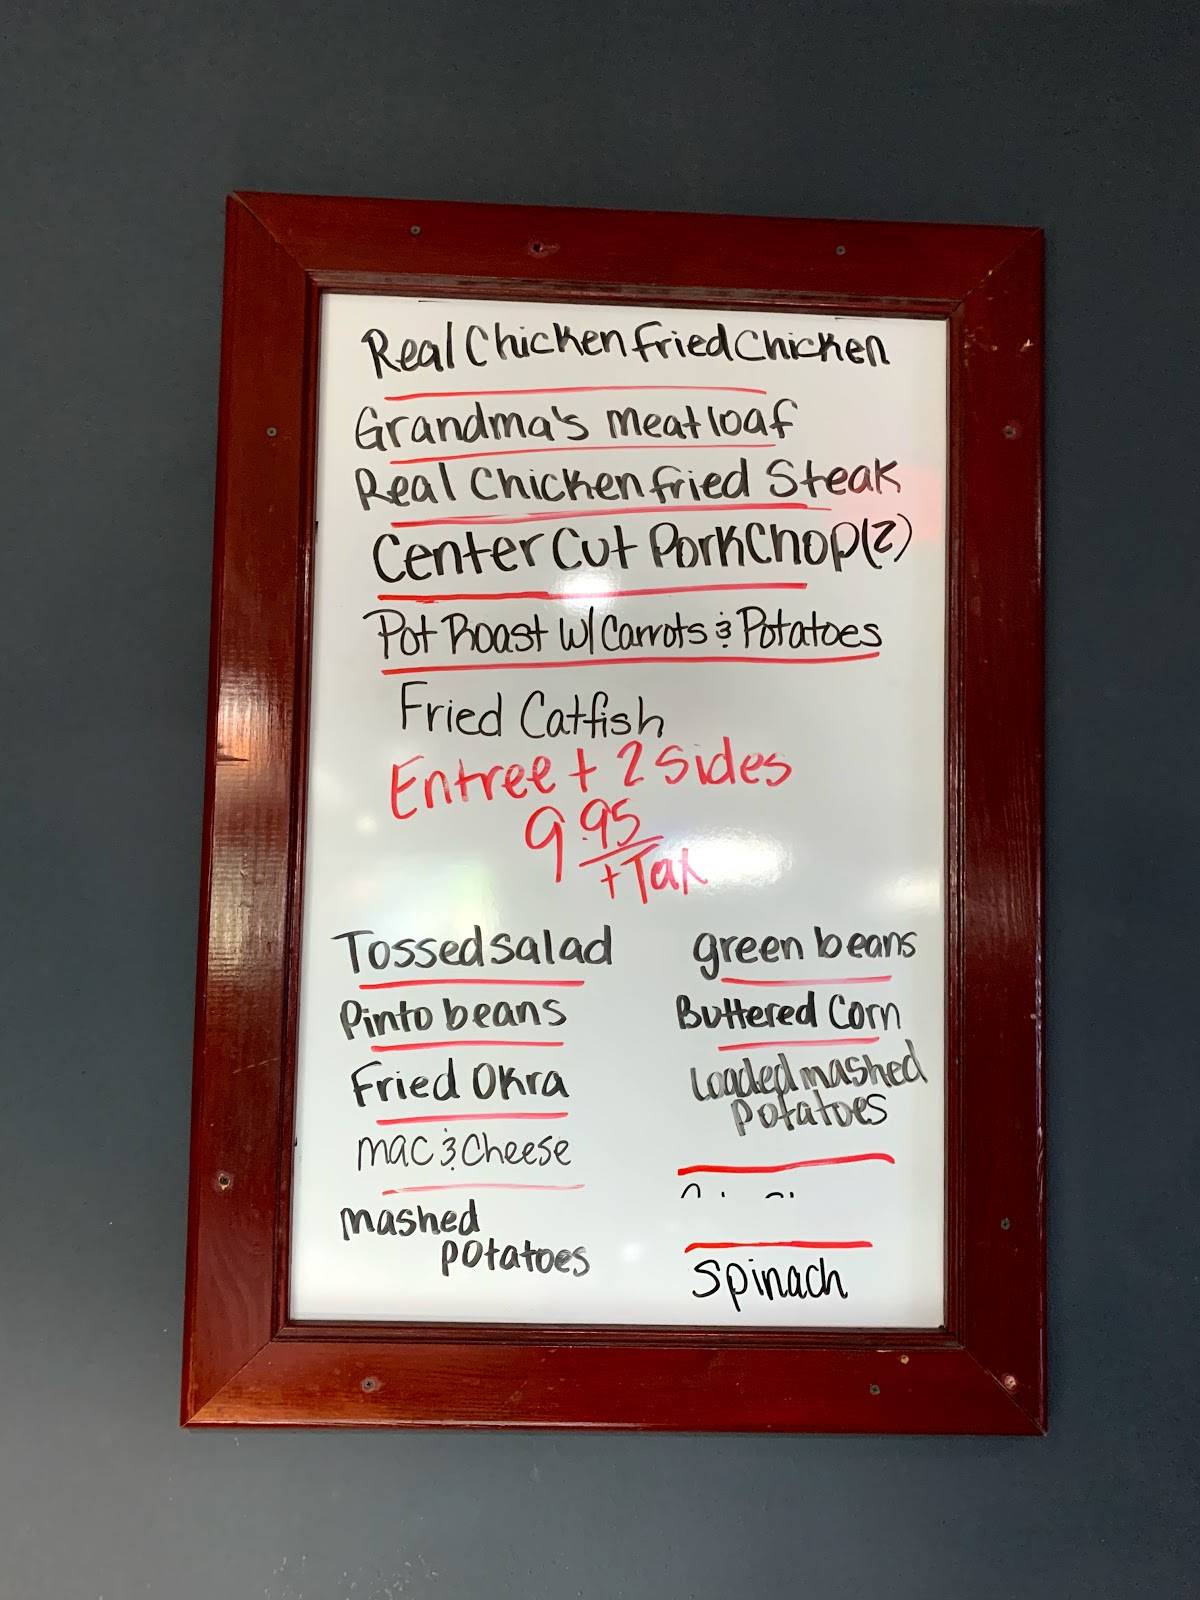 Real Chicken Fried Chicken
Grandma's meatloaf
Real Chicken fried Steak
Center Cut Pork Chop (2)
Pot Roast w/ Carrots & Potatoes
Fried Catfish
Entree + 2 sides
9.95
+ Tax
Tossed salad
green beans
Pinto beans
Buttered Corn
Fried Okra
Loaded mashed
potatoes
mac & Cheese
mashed
potatoes
Spinach